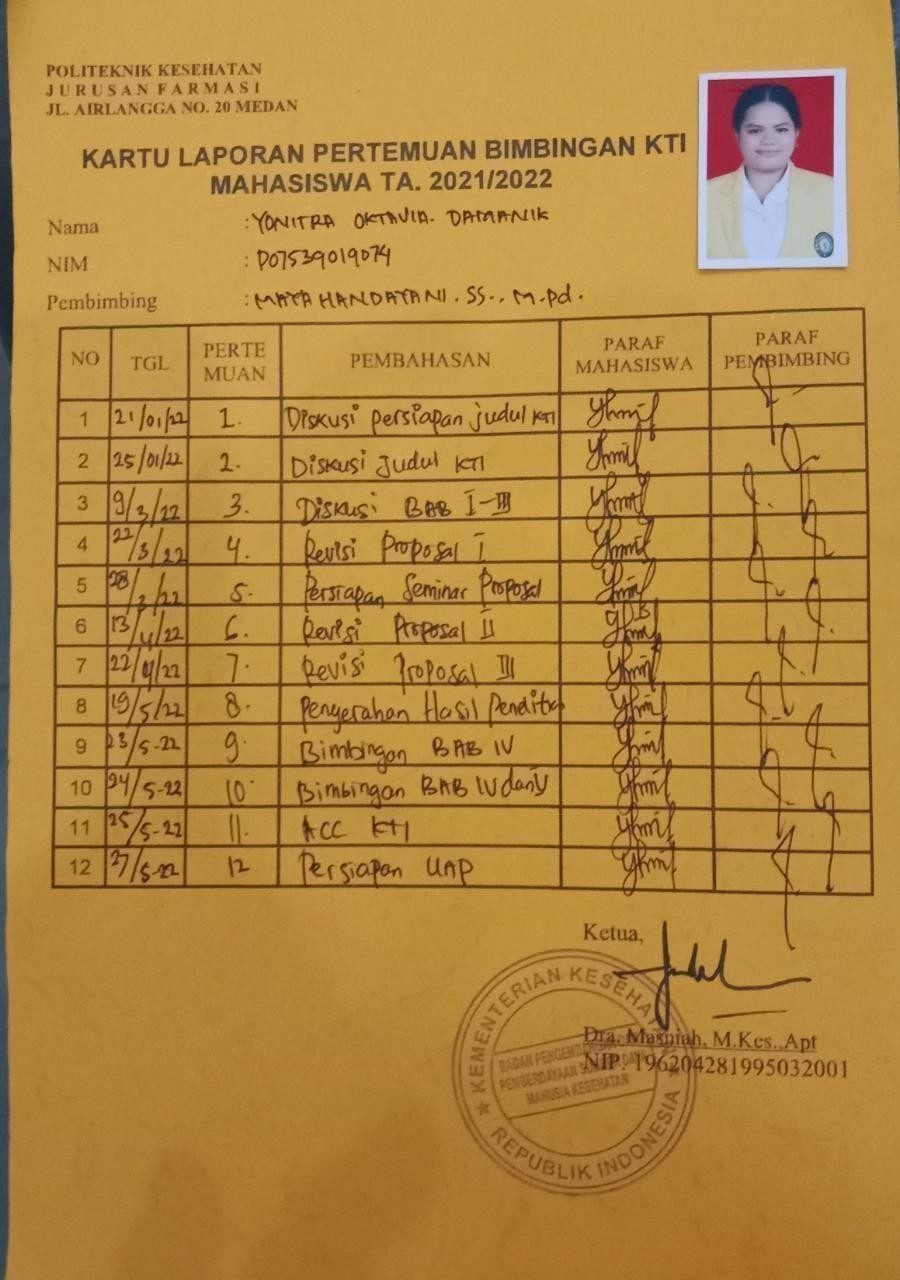 POLITEKNIK KESEHATAN
JURUSAN FARMASI
JL. AIRLANGGA NO. 20 MEDAN
KARTU LAPORAN PERTEMUAN BIMBINGAN KTI
MAHASISWA TA. 2021/2022
Nama : YONITRA OKTAVIA. DAMANIK
NIM : P07539019074
Pembimbing : MAYA HANDAYANI. SS., M.Pd.
NO TGL PERTE MUAN PEMBAHASAN PARAF MAHASISWA PARAF PEMBIMBING
1 21/01/22 1. Diskusi persiapan judul KTI
2 25/01/22 2. Diskusi judul KTI
3 9/3/22 3. Diskusi BAB I-III
4 22/3/22 4. Revisi Proposal I
5 28/3/22 5. Persiapan Seminar Proposal
6 13/4/22 6. Revisi Proposal II
7 22/4/22 7. Revisi Proposal III
8 19/5/22 8. Penyerahan Hasil
9 23/5-22 9. Bimbingan BAB IV
10 24/5-22 10. Bimbingan BAB IV dan V
11 25/5-22 11. ACC KTI
12 27/5-22 12 Persiapan UAP
Ketua,
Dra. Masniah, M.Kes.,Apt
NIP. 196204281995032001
KEMENTERIAN KESEHATAN
BADAN PENGEMBANGAN DAN
PEMBERDAYAAN SUMBER DAYA
MANUSIA KESEHATAN
REPUBLIK INDONESIA